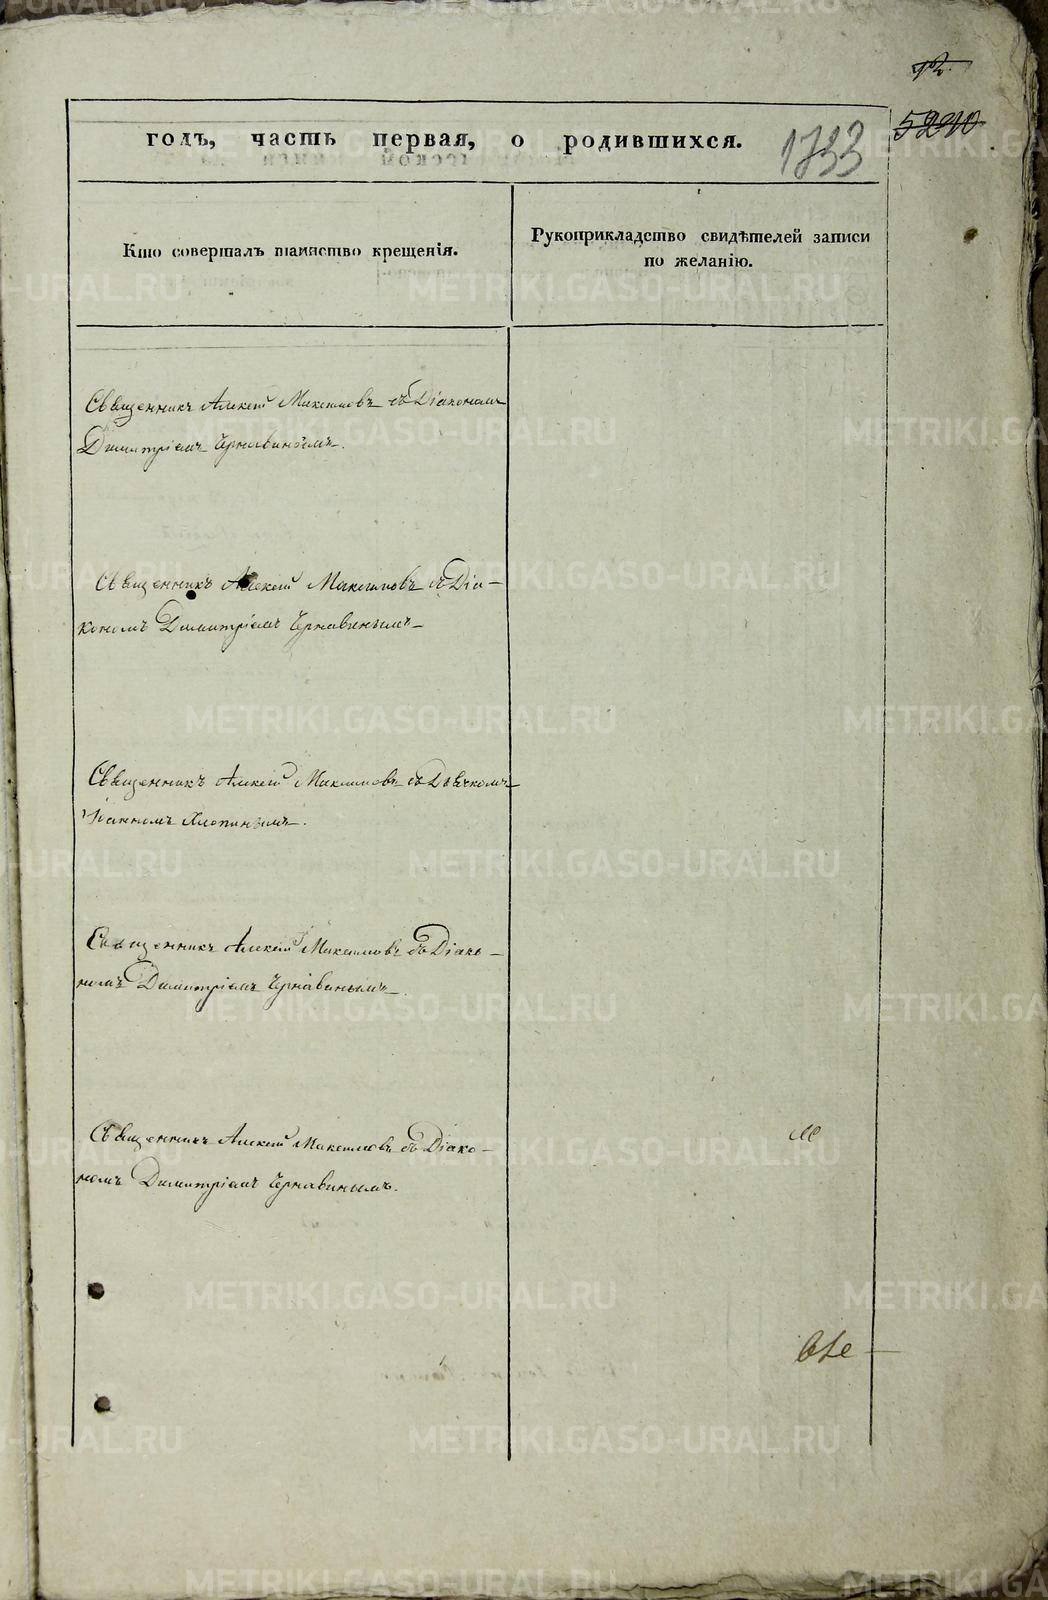 92.
52240
годъ, часть первая, о родившихся.
1733
Кто совершалъ таинство крещенія.
Рукоприкладство свидѣтелей записи
по желанію.
Священникъ Алексѣй Максимовъ съ Діакономъ
Димитріемъ Чернавинымъ.
Священникъ Алексѣй Максимовъ съ Діа-
кономъ Димитріемъ Чернавинымъ
Священникъ Алексѣй Максимовъ съ Дьячкомъ
Іоанномъ Хлопинымъ.
Священникъ Алексѣй Максимовъ съ Діако-
номъ Димитріемъ Чернавинымъ.
Священникъ Алексѣй Максимовъ съ Діако-
номъ Димитріемъ Чернавинымъ.
METRIKI.GASO-URAL.RU